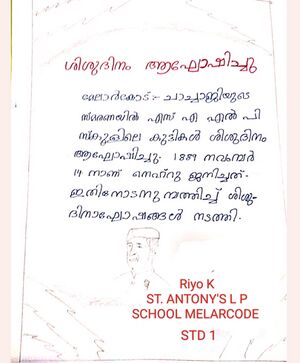 ശിശുദിനം ആഘോഷിച്ചു
മേലാർകോട്:- ചാച്ചാജിയുടെ
സ്മരണയിൽ എസ് എ എൽ പി
സ്കൂളിലെ കുട്ടികൾ ശിശുദിനം
ആഘോഷിച്ചു. 1889 നവംബർ
14 നാണ് നെഹ്റു ജനിച്ചത്.
ഇതിനോടനുബന്ധിച്ച് ശിശു-
ദിനാഘോഷങ്ങൾ നടത്തി.
Riyo K
ST. ANTONY'S L P
SCHOOL MELARCODE
STD 1